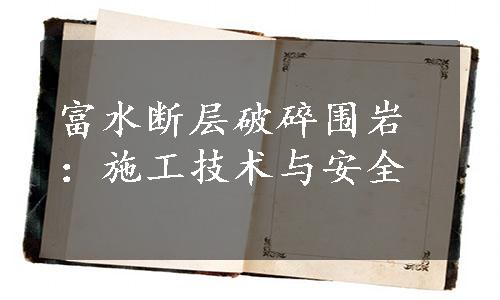 富水断层破碎围岩
：施工技术与安全